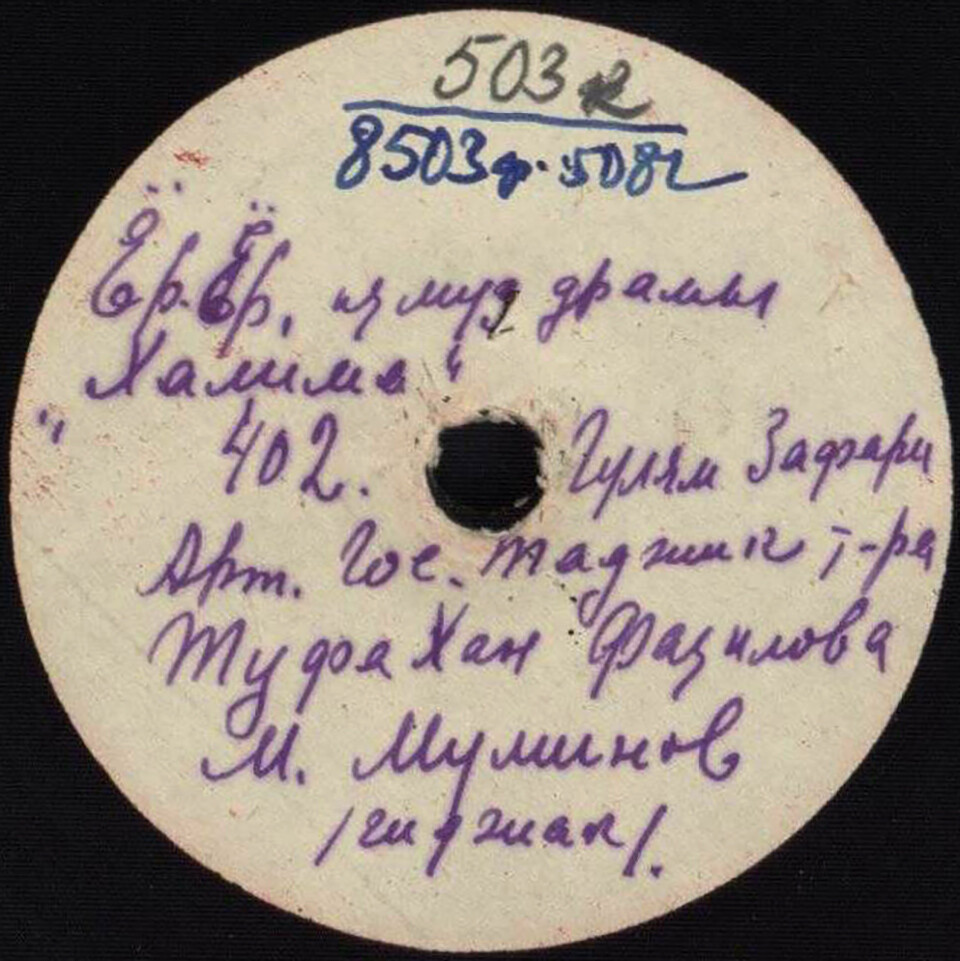 503к
8503ф. 5082
Ёр.Ёр, из муз драмы
"Халима"
402. Гулям Зафари
Арт. Гос. таджик т-ра
Туфахан Фазилова
М. Муминов
/гиджак/.